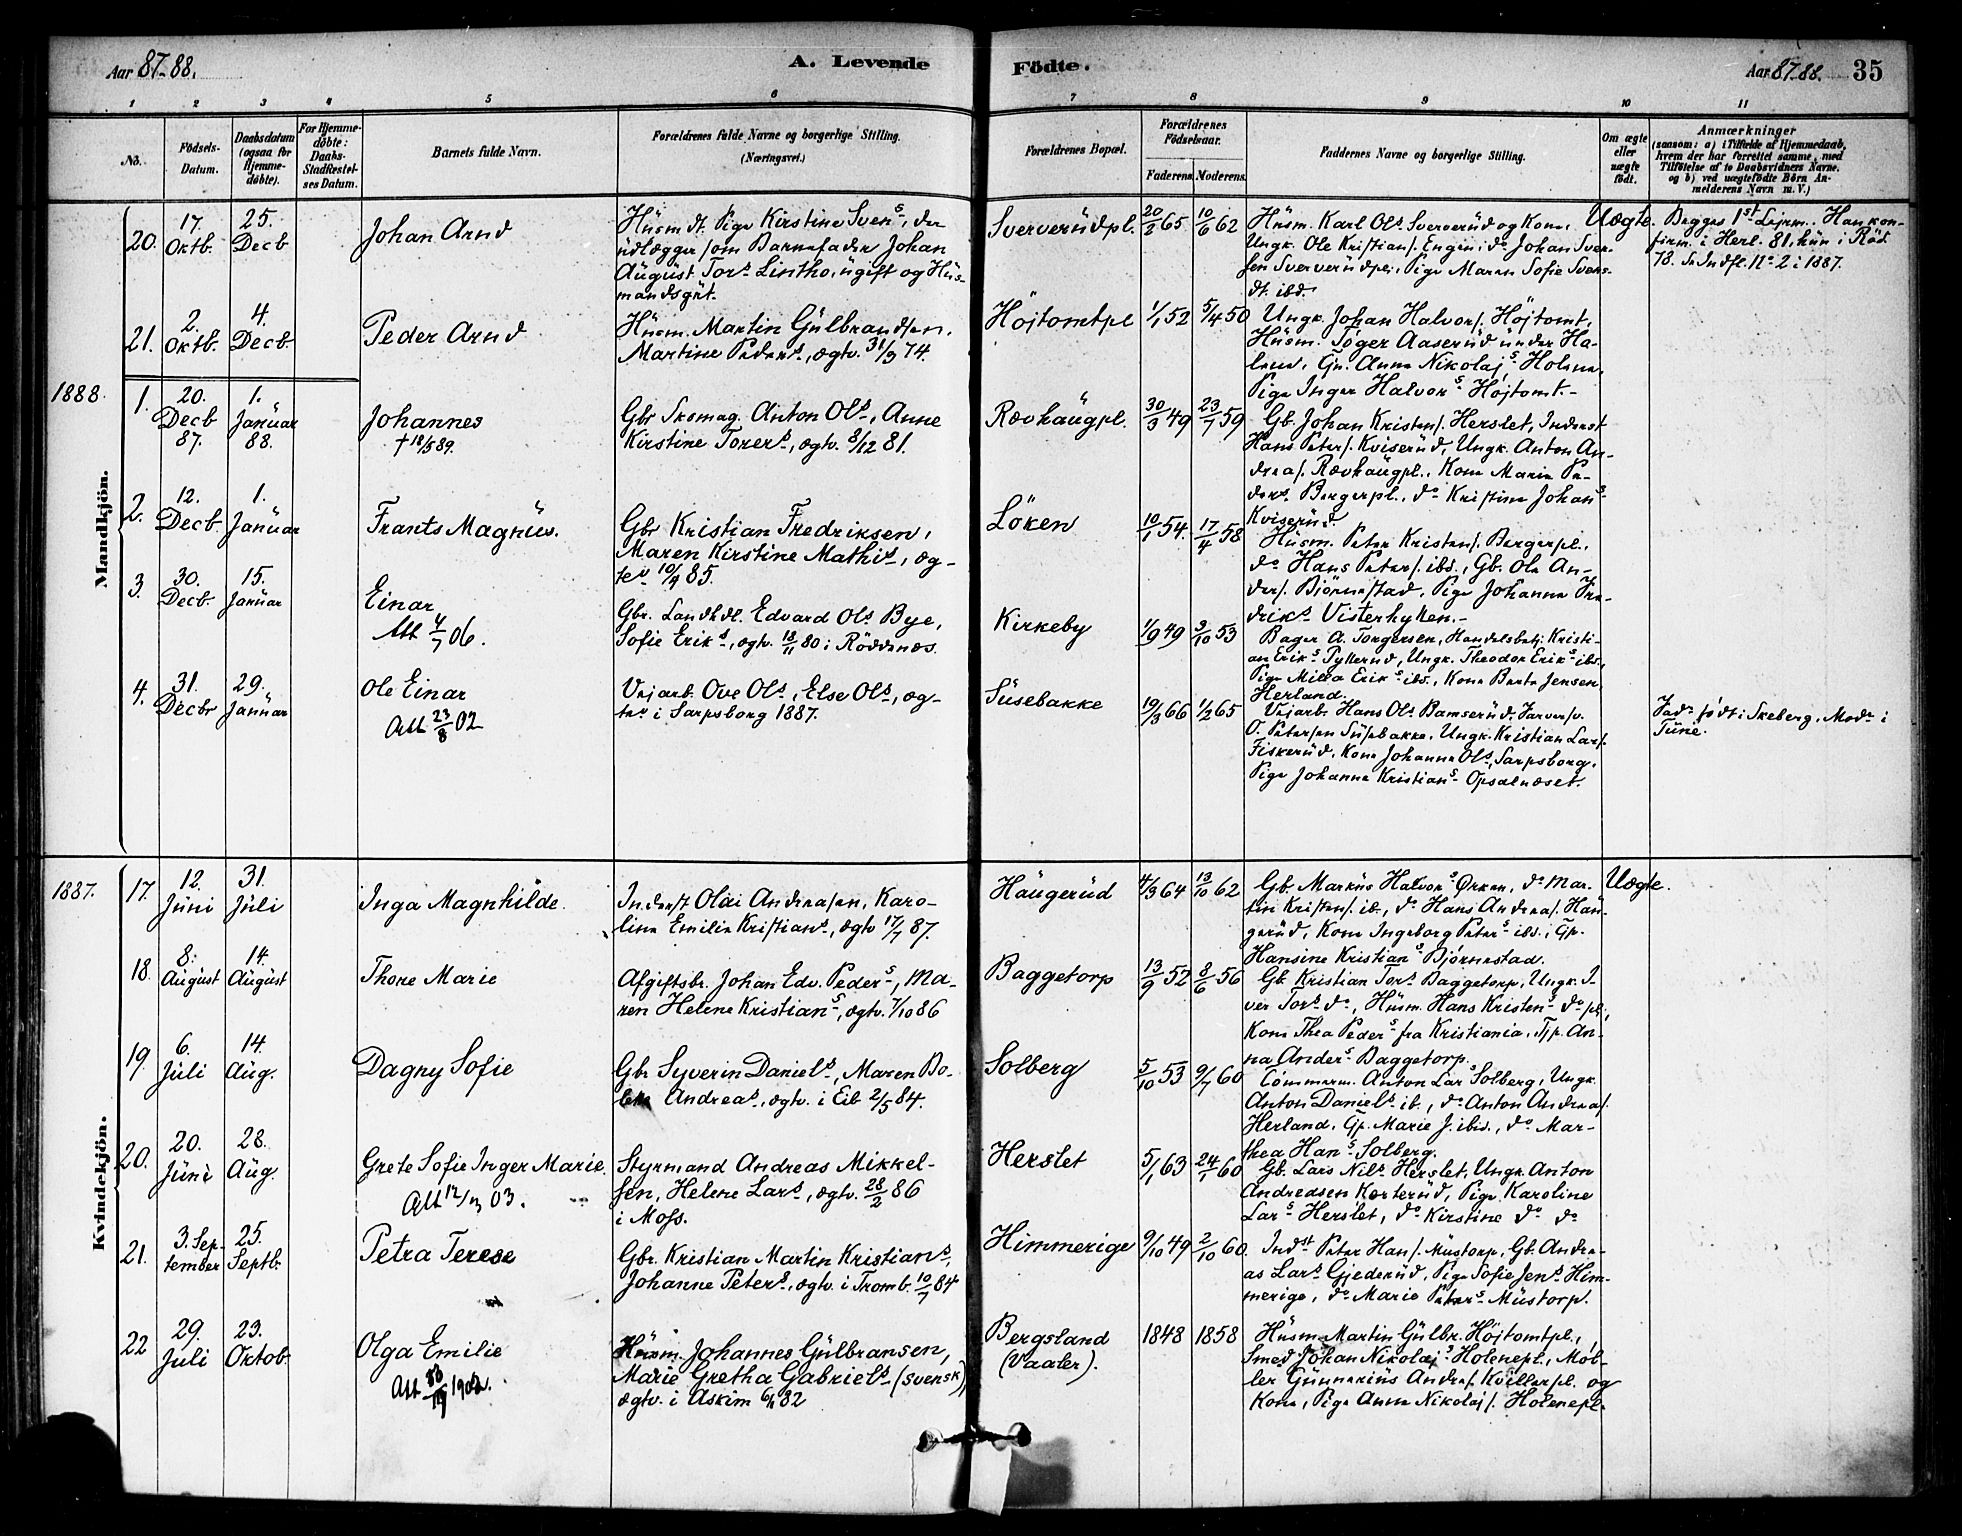 Aar 87-88.
A. Levende
Födte.
Aar 87-88.
35
1 2 3 4 5 6 7 8 9 10 11
No.
Födsels-
Datum.
Daabsdatum
(ogsaa for
Hjemme-
döbte).
For Hjemme-
döbte:
Daabs-
Stadfæstel-
ses Datum.
Barnets fulde Navn.
Forældrenes fulde Navne og borgerlige Stilling.
(Næringsvei.)
Forældrenes Bopæl.
Forældrenes
Födselsaar.
Faderens. Moderens.
Faddernes Navne og borgerlige Stilling.
Om ægte
eller
uægte
födt.
Anmærkninger
(saasom: a) i Tilfælde af Hjemmedaab,
hvem der har forrettet samme, med
Tilföielse af to Daabsvidners Navne.
og b) ved uægtefödte Börn An-
melderens Navn m. V.)
Mandkjön.
20.
17.
Oktb.
25.
Decb
Johan Arnd
Husm. dt. Pige Kirstine Svens, der
udlægger som Barnefader Johan
August Tors. Lintho, ugift og Hus-
mandsgut.
Sververudpl.
20/2 65
10/6 62
Husm. Karl Ols. Sververud og Kone,
Ungk. Ole Kristians. Engen, do Johan Sver-
sen Sververudpl., Pige Maren Sofie Svens-
dt. ibd.
Uægte
Begges 1st Lejrm. Han kon-
firm. i Herl. 81, hun i Röd.
78. Se Indfl. No 2 i 1887.
21.
2.
Oktb.
4.
Decb.
Peder Arnd
Husm. Martin Gulbrandsen,
Martine Peders, ægtv. 31/3 74.
Höjtomtpl
1/1 52
5/4 50
Ungk. Johan Halvors. Höjtomt,
Husm. Töger Aaserud under Ha-
land, Gp. Anna Nikolajs Holene,
Pige Inger Halvors Höjtomt.-
1888.
1.
20.
Decb
87.
1.
Januar
88.
Johannes
† 18/5 89.
Gbr Skomag. Anton Ols, Anne
Kirstine Torers, ægtv. 8/12 81.
Rævhaugpl.
30/3 49
23/7 59
Gb. Johan Kristens. Herslet, Inderst
Hans Peters. Kviserud, Ungk. Anton An-
dreas. Rævhaugpl., Kone Marie Pe-
ders Bergerpl., do Kristine Johans
Kviserud.
2.
12.
Decb.
1.
Januar
Frants Magnus.
Gbr Kristian Fredriksen,
Maren Kirstine Mathis, æg-
tev 10/9 85.
Löken
10/1 54.
17/4 58
Husm. Peter Kristens. Bergerpl.,
do Hans Peters. ibd., Gb. Ole An-
ders. Björnestad, Pige Johanne Fre-
driks Visterhyken.-
3.
30.
Decb.
15.
Januar
Einar
Att 4/7 06.
Gbr. Landhdl. Edvard Ols Bye,
Sofie Eriks, ægtv. 18/11 80 i Röddenæs.
Kirkeby
1/9 49
3/10 53
Bager A. Torgersen, Handelsbetj. Kristi-
an Eriks Tykerud, Ungk. Theodor Eriks ibd.,
Pige Milla Eriks ibd., Kone Berte Jensen
Herland.
4.
31.
Decbr
29.
Januar
Ole Einar
Att 23/8 02
Vejarb. Ove Ols, Else Ols, æg-
tev i Sarpsborg 1887.
Susebakke
19/3 66
1/2 65
Vejarb. Hans Ols Bamserud, Farver sv.
O. Petersen Susebakke, Ungk. Kristian Lars.
Fiskerud, Kone Johanne Ols, Sarpsborg,
Pige Johanne Kristians Opsalnæset.
Fadr födt i Skeberg, Modr i
Tune.
Kvindekjön.
1887.
17.
12.
Juni
31.
Juli
Inga Magnhilde
Inderst Olai Andreasen, Karo-
line Emilie Kristians, ægtv 17/7 87.
Haugerud
4/3 64
13/10 62
Gb. Markus Halvors Örken, do Mar-
tin Kristens. ib., do Hans Andreas. Hau-
gerud, Kone Ingeborg Peters ibd., Gp.
Hansine Kristians Björnestad.
Uægte.
18.
8.
August
14.
August
Thore Marie
Afgiftsbr. Johan Edv. Peders, Ma-
ren Helene Kristians, ægtv. 7/10 86
Baggetorp
13/9 52
8/6 56
Gb. Kristian Tors Baggetorp, Ungk. I-
ver Tors do, Husm. Hans Kristens do pl,
Kone Thea Peders fra Kristiania, Gp. An-
na Anders Baggetorp.
19.
6.
Juli
14.
Aug.
Dagny Sofie
Gbr Syverin Daniels, Maren Bo-
lette Andreas, ægtv. i Eib 2/5 84.
Solberg
5/10 53
9/7 60
Tömmerm. Anton Lars Solberg, Ungk.
Anton Daniels ib., do Anton Andreas.
Herland, Gp. Marie J. ibid., do Mar-
thea Hans Solberg.
20.
20.
Juni
28.
Aug.
Grete Sofie Inger Marie
Att 12/3 03.
Styrmand Andreas Mikkel-
sen, Helene Lars, ægtv. 28/2 86
i Moss.
Herslet
5/1 63
24/1 60
Gb. Lars Nils Herslet, Ungk. Anton
Andredsen Korterud, Pige Karoline
Lars Herslet, do Kirstine do do
21.
3. Sep-
tember
25.
Septb.
Petra Terese
Gbr. Kristian Martin Kristians,
Johanne Peters, ægtv. i Tromb. 10/7 84
Himmerige
9/10 49
2/10 60
Indst Peter Hans. Mustorp, Gb. Andre-
as Lars Gjederud, Pige Sofie Jens Him-
merige, do Marie Peters Mustorp.
22
29.
Juli
23.
Oktob.
Olga Emilie
Att 1902.
Husm. Johannes Gulbransen,
Marie Gretha Gabriels (svensk),
ægtv. i Askim 82
Bergsland
(Vaaler).
1848
1858
Husm. Martin Gulbr. Höjtomtpl.,
Smed Johan Nikolajs Holenepl., Möl-
ler Gunnerius Andreas. Kvillerpl. og
Kone, Pige Anne Nikolajs. Holenepl.